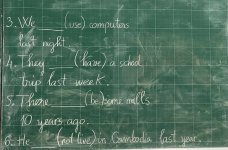 3. We ____ (use) computers
last night.
4. They ____ (have) a school
trip last week.
5. There ____ (be) some mills
10 years ago.
6. He ____ (not live) in Cambodia last year.